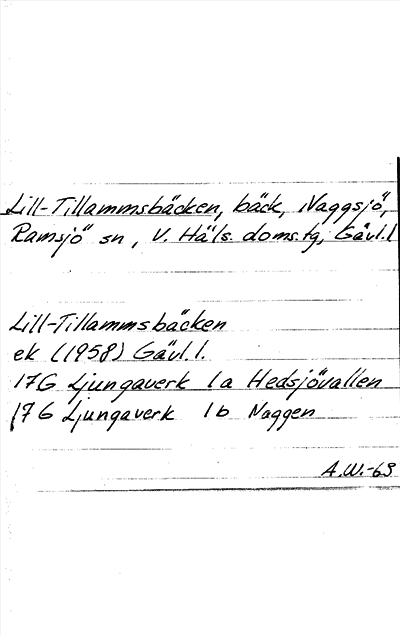 Lill-Tillammsbäcken, bäck, Naggsjö,
Ramsjö sn, V. Häls. doms.tg, Gävl.l
Lill-Tillammsbäcken
ek (1958) Gävl.l.
17G Ljungaverk 1a Hedsjövallen
17G Ljungaverk 1b Naggen
A.W.-63